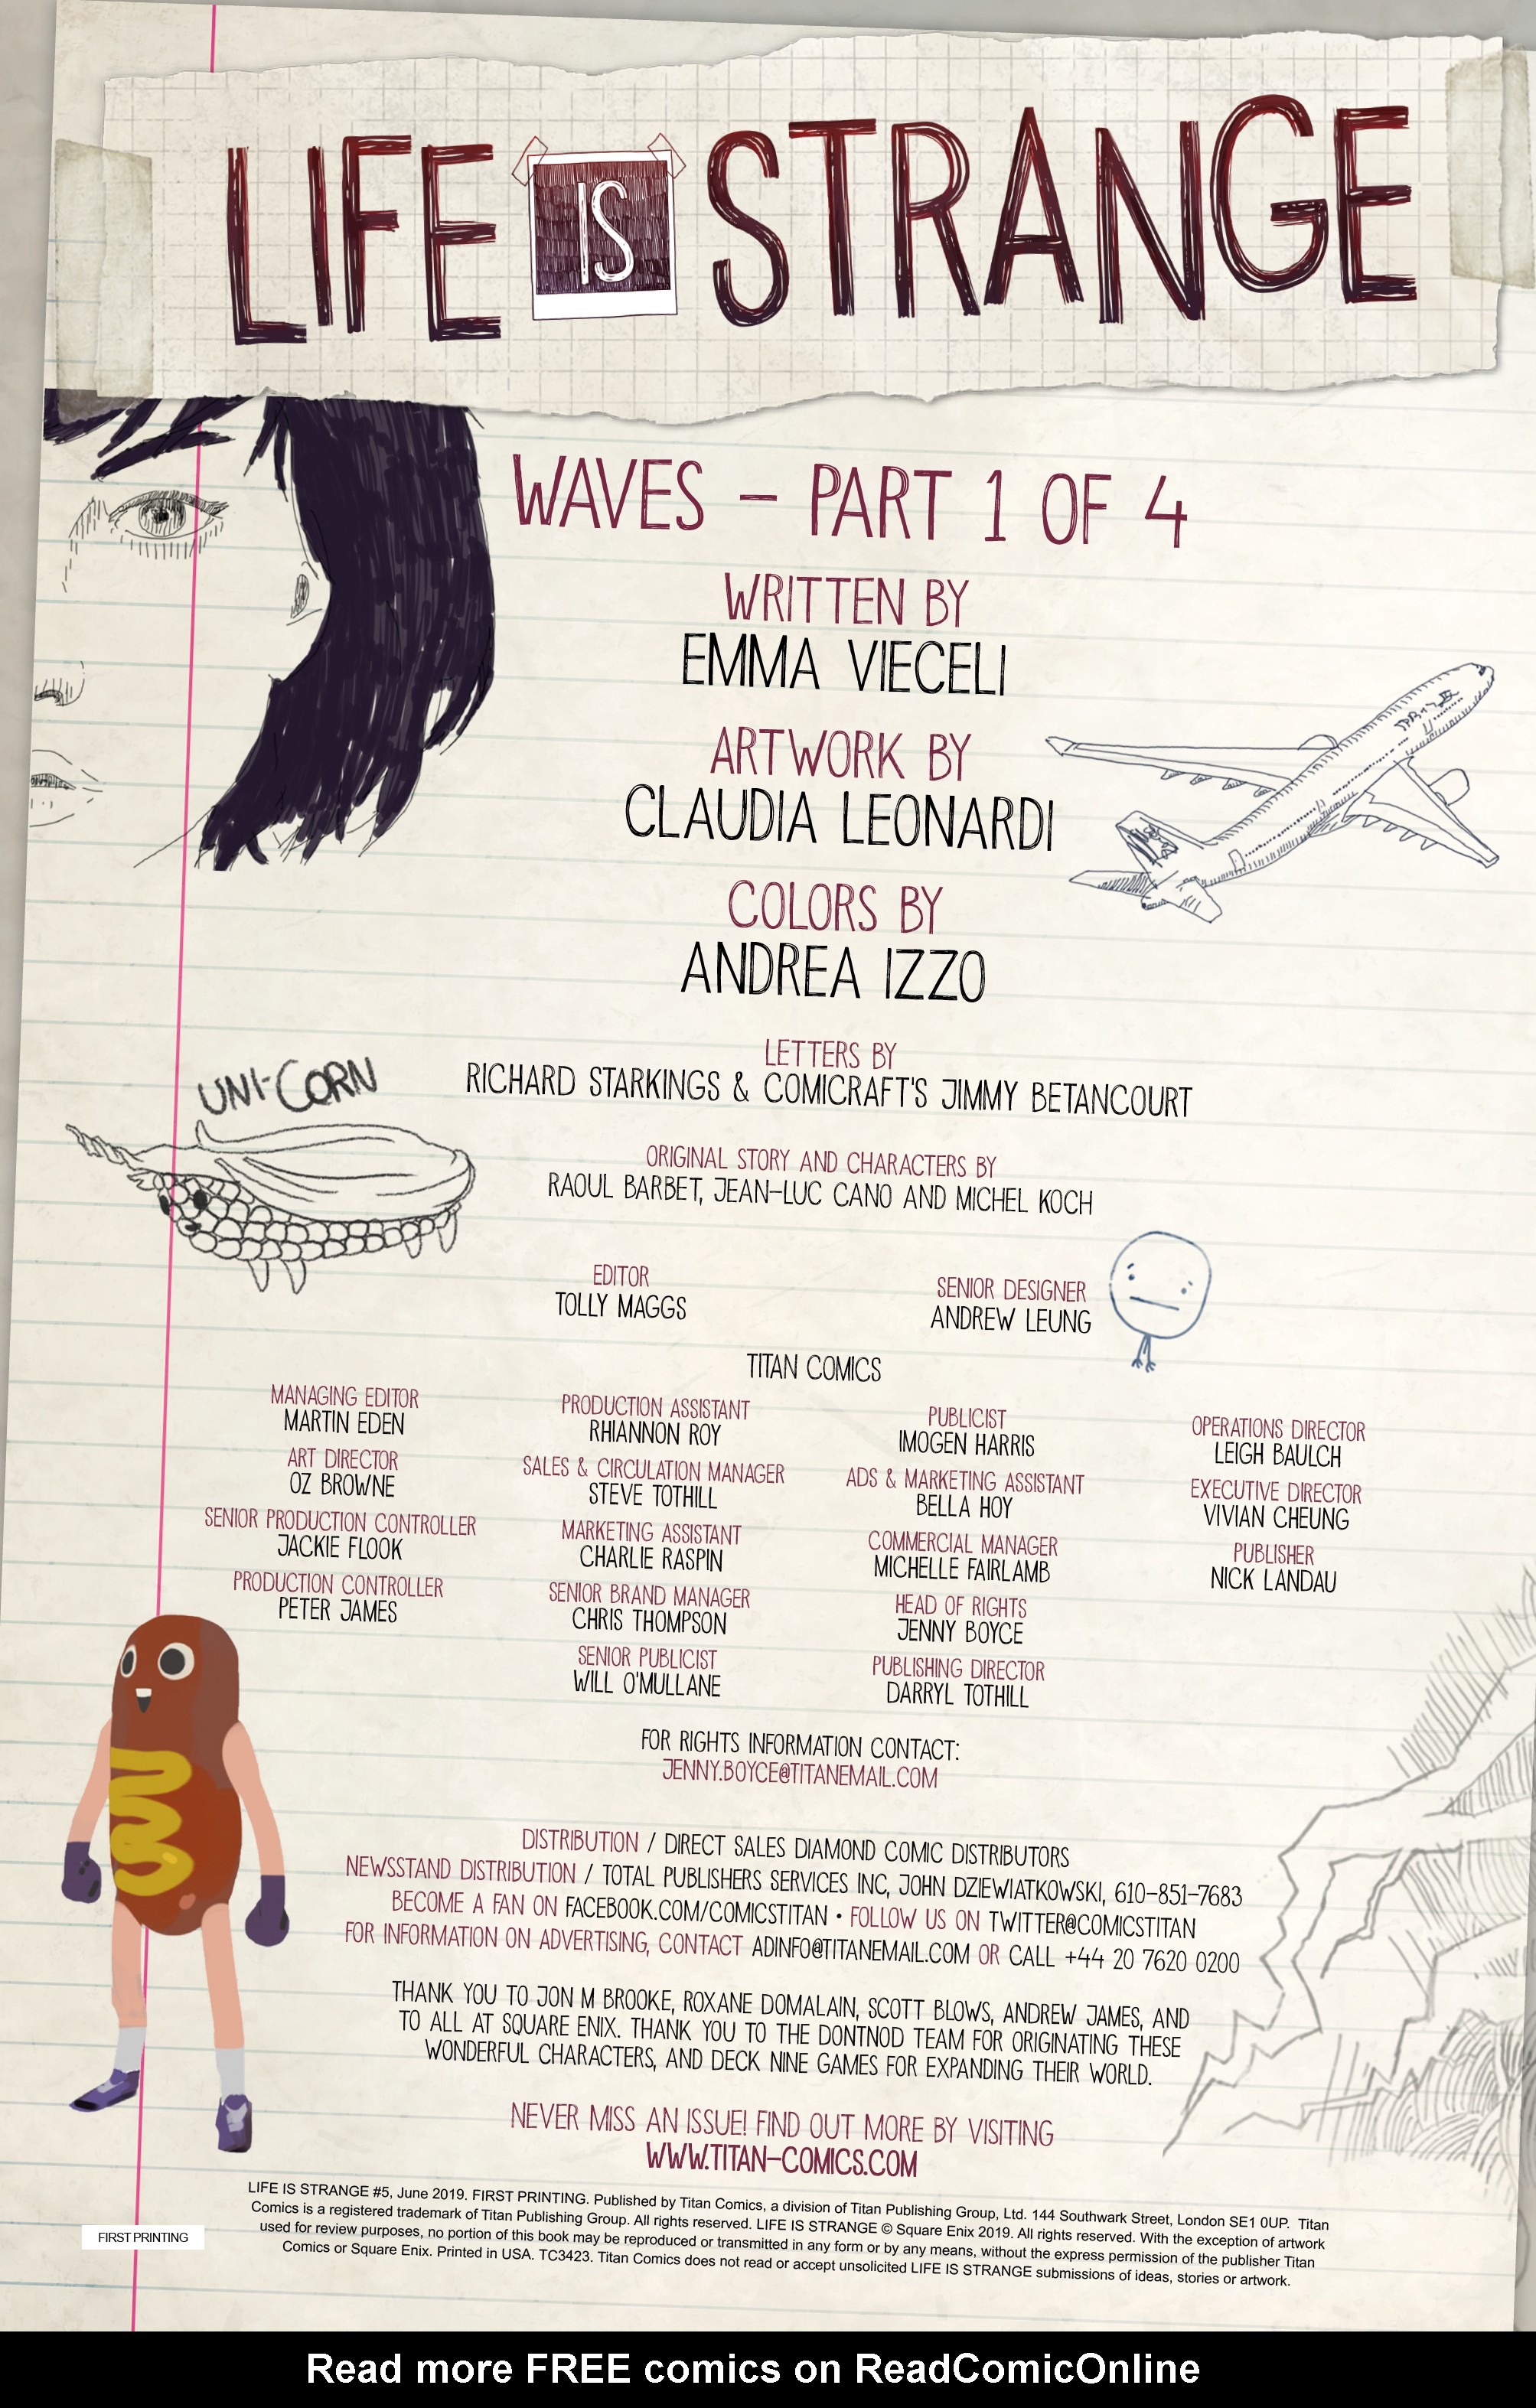 LIFE IS STRANGE
WAVES – PART 1 OF 4
WRITTEN BY
EMMA VIECELI
ARTWORK BY
CLAUDIA LEONARDI
COLORS BY
ANDREA IZZO
LETTERS BY
RICHARD STARKINGS & COMICRAFT'S JIMMY BETANCOURT
UNI-CORN
ORIGINAL STORY AND CHARACTERS BY
RAOUL BARBET, JEAN-LUC CANO AND MICHEL KOCH
EDITOR
TOLLY MAGGS
SENIOR DESIGNER
ANDREW LEUNG
TITAN COMICS
MANAGING EDITOR
MARTIN EDEN
ART DIRECTOR
OZ BROWNE
SENIOR PRODUCTION CONTROLLER
JACKIE FLOOK
PRODUCTION CONTROLLER
PETER JAMES
PRODUCTION ASSISTANT
RHIANNON ROY
SALES & CIRCULATION MANAGER
STEVE TOTHILL
MARKETING ASSISTANT
CHARLIE RASPIN
SENIOR BRAND MANAGER
CHRIS THOMPSON
SENIOR PUBLICIST
WILL O'MULLANE
PUBLICIST
IMOGEN HARRIS
ADS & MARKETING ASSISTANT
BELLA HOY
COMMERCIAL MANAGER
MICHELLE FAIRLAMB
HEAD OF RIGHTS
JENNY BOYCE
PUBLISHING DIRECTOR
DARRYL TOTHILL
OPERATIONS DIRECTOR
LEIGH BAULCH
EXECUTIVE DIRECTOR
VIVIAN CHEUNG
PUBLISHER
NICK LANDAU
FOR RIGHTS INFORMATION CONTACT:
JENNY.BOYCE@TITANEMAIL.COM
DISTRIBUTION / DIRECT SALES DIAMOND COMIC DISTRIBUTORS
NEWSSTAND DISTRIBUTION / TOTAL PUBLISHERS SERVICES INC, JOHN DZIEWIATKOWSKI, 610-851-7683
BECOME A FAN ON FACEBOOK.COM/COMICSTITAN • FOLLOW US ON TWITTER@COMICSTITAN
FOR INFORMATION ON ADVERTISING, CONTACT ADINFO@TITANEMAIL.COM OR CALL +44 20 7620 0200
THANK YOU TO JON M BROOKE, ROXANE DOMALAIN, SCOTT BLOWS, ANDREW JAMES, AND
TO ALL AT SQUARE ENIX. THANK YOU TO THE DONTNOD TEAM FOR ORIGINATING THESE
WONDERFUL CHARACTERS, AND DECK NINE GAMES FOR EXPANDING THEIR WORLD.
NEVER MISS AN ISSUE! FIND OUT MORE BY VISITING
WWW.TITAN-COMICS.COM
LIFE IS STRANGE #5, June 2019. FIRST PRINTING. Published by Titan Comics, a division of Titan Publishing Group, Ltd. 144 Southwark Street, London SE1 0UP. Titan
Comics is a registered trademark of Titan Publishing Group. All rights reserved. LIFE IS STRANGE © Square Enix 2019. All rights reserved. With the exception of artwork
used for review purposes, no portion of this book may be reproduced or transmitted in any form or by any means, without the express permission of the publisher Titan
Comics or Square Enix. Printed in USA. TC3423. Titan Comics does not read or accept unsolicited LIFE IS STRANGE submissions of ideas, stories or artwork.
FIRST PRINTING
Read more FREE comics on ReadComicOnline